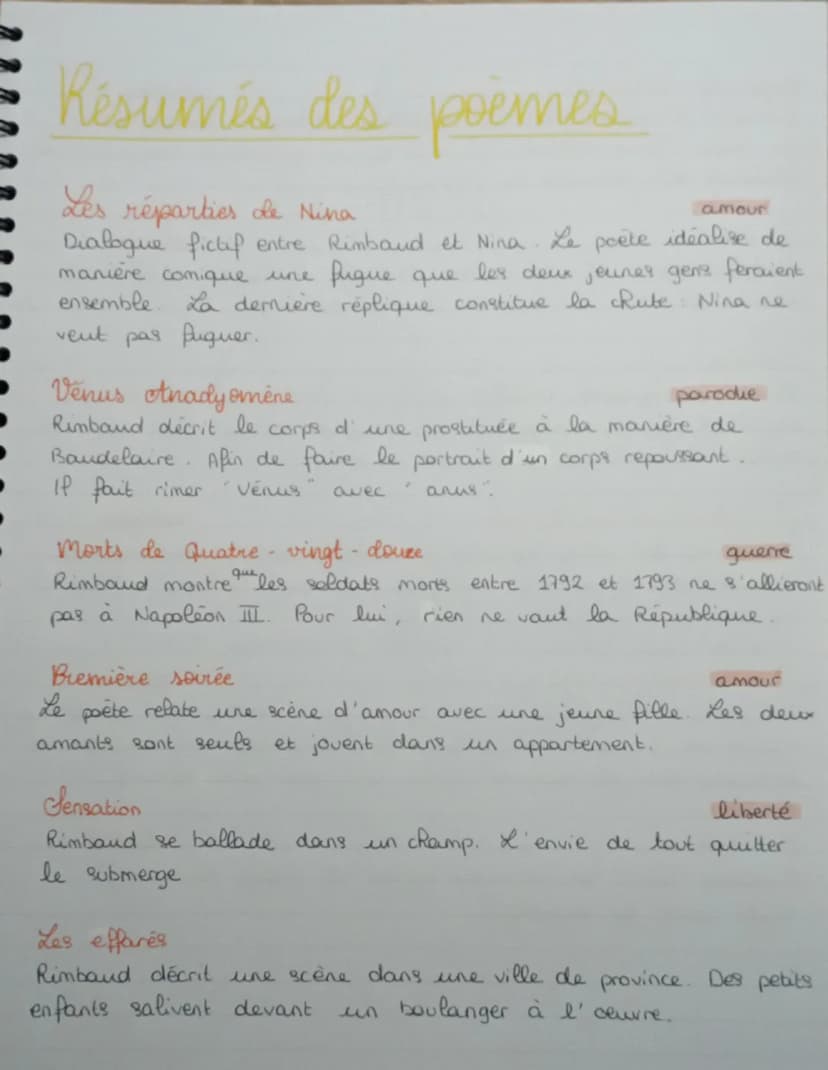 Résumés des poèmes
Les réparties de Nina amour
Dialogue fictif entre Rimbaud et Nina. Le poète idéalise de
manière comique une fugue que les deux jeunes gens feraient
ensemble. La dernière réplique constitue la chute : Nina ne
veut pas fuguer.
Vénus Anadyomène parodie
Rimbaud décrit le corps d'une prostituée à la manière de
Baudelaire. Afin de faire le portrait d'un corps repoussant.
Il fait rimer "Vénus" avec "anus".
Morts de Quatre-vingt-douze guerre
Rimbaud montre que les soldats morts entre 1792 et 1793 ne s'allieront
pas à Napoléon III. Pour lui, rien ne vaut la République.
Première soirée amour
Le poète relate une scène d'amour avec une jeune fille. Les deux
amants sont seuls et jouent dans un appartement.
Sensation liberté
Rimbaud se ballade dans un champ. L'envie de tout quitter
le submerge
Les effarés
Rimbaud décrit une scène dans une ville de province. Des petits
enfants salivent devant un boulanger à l'œuvre.